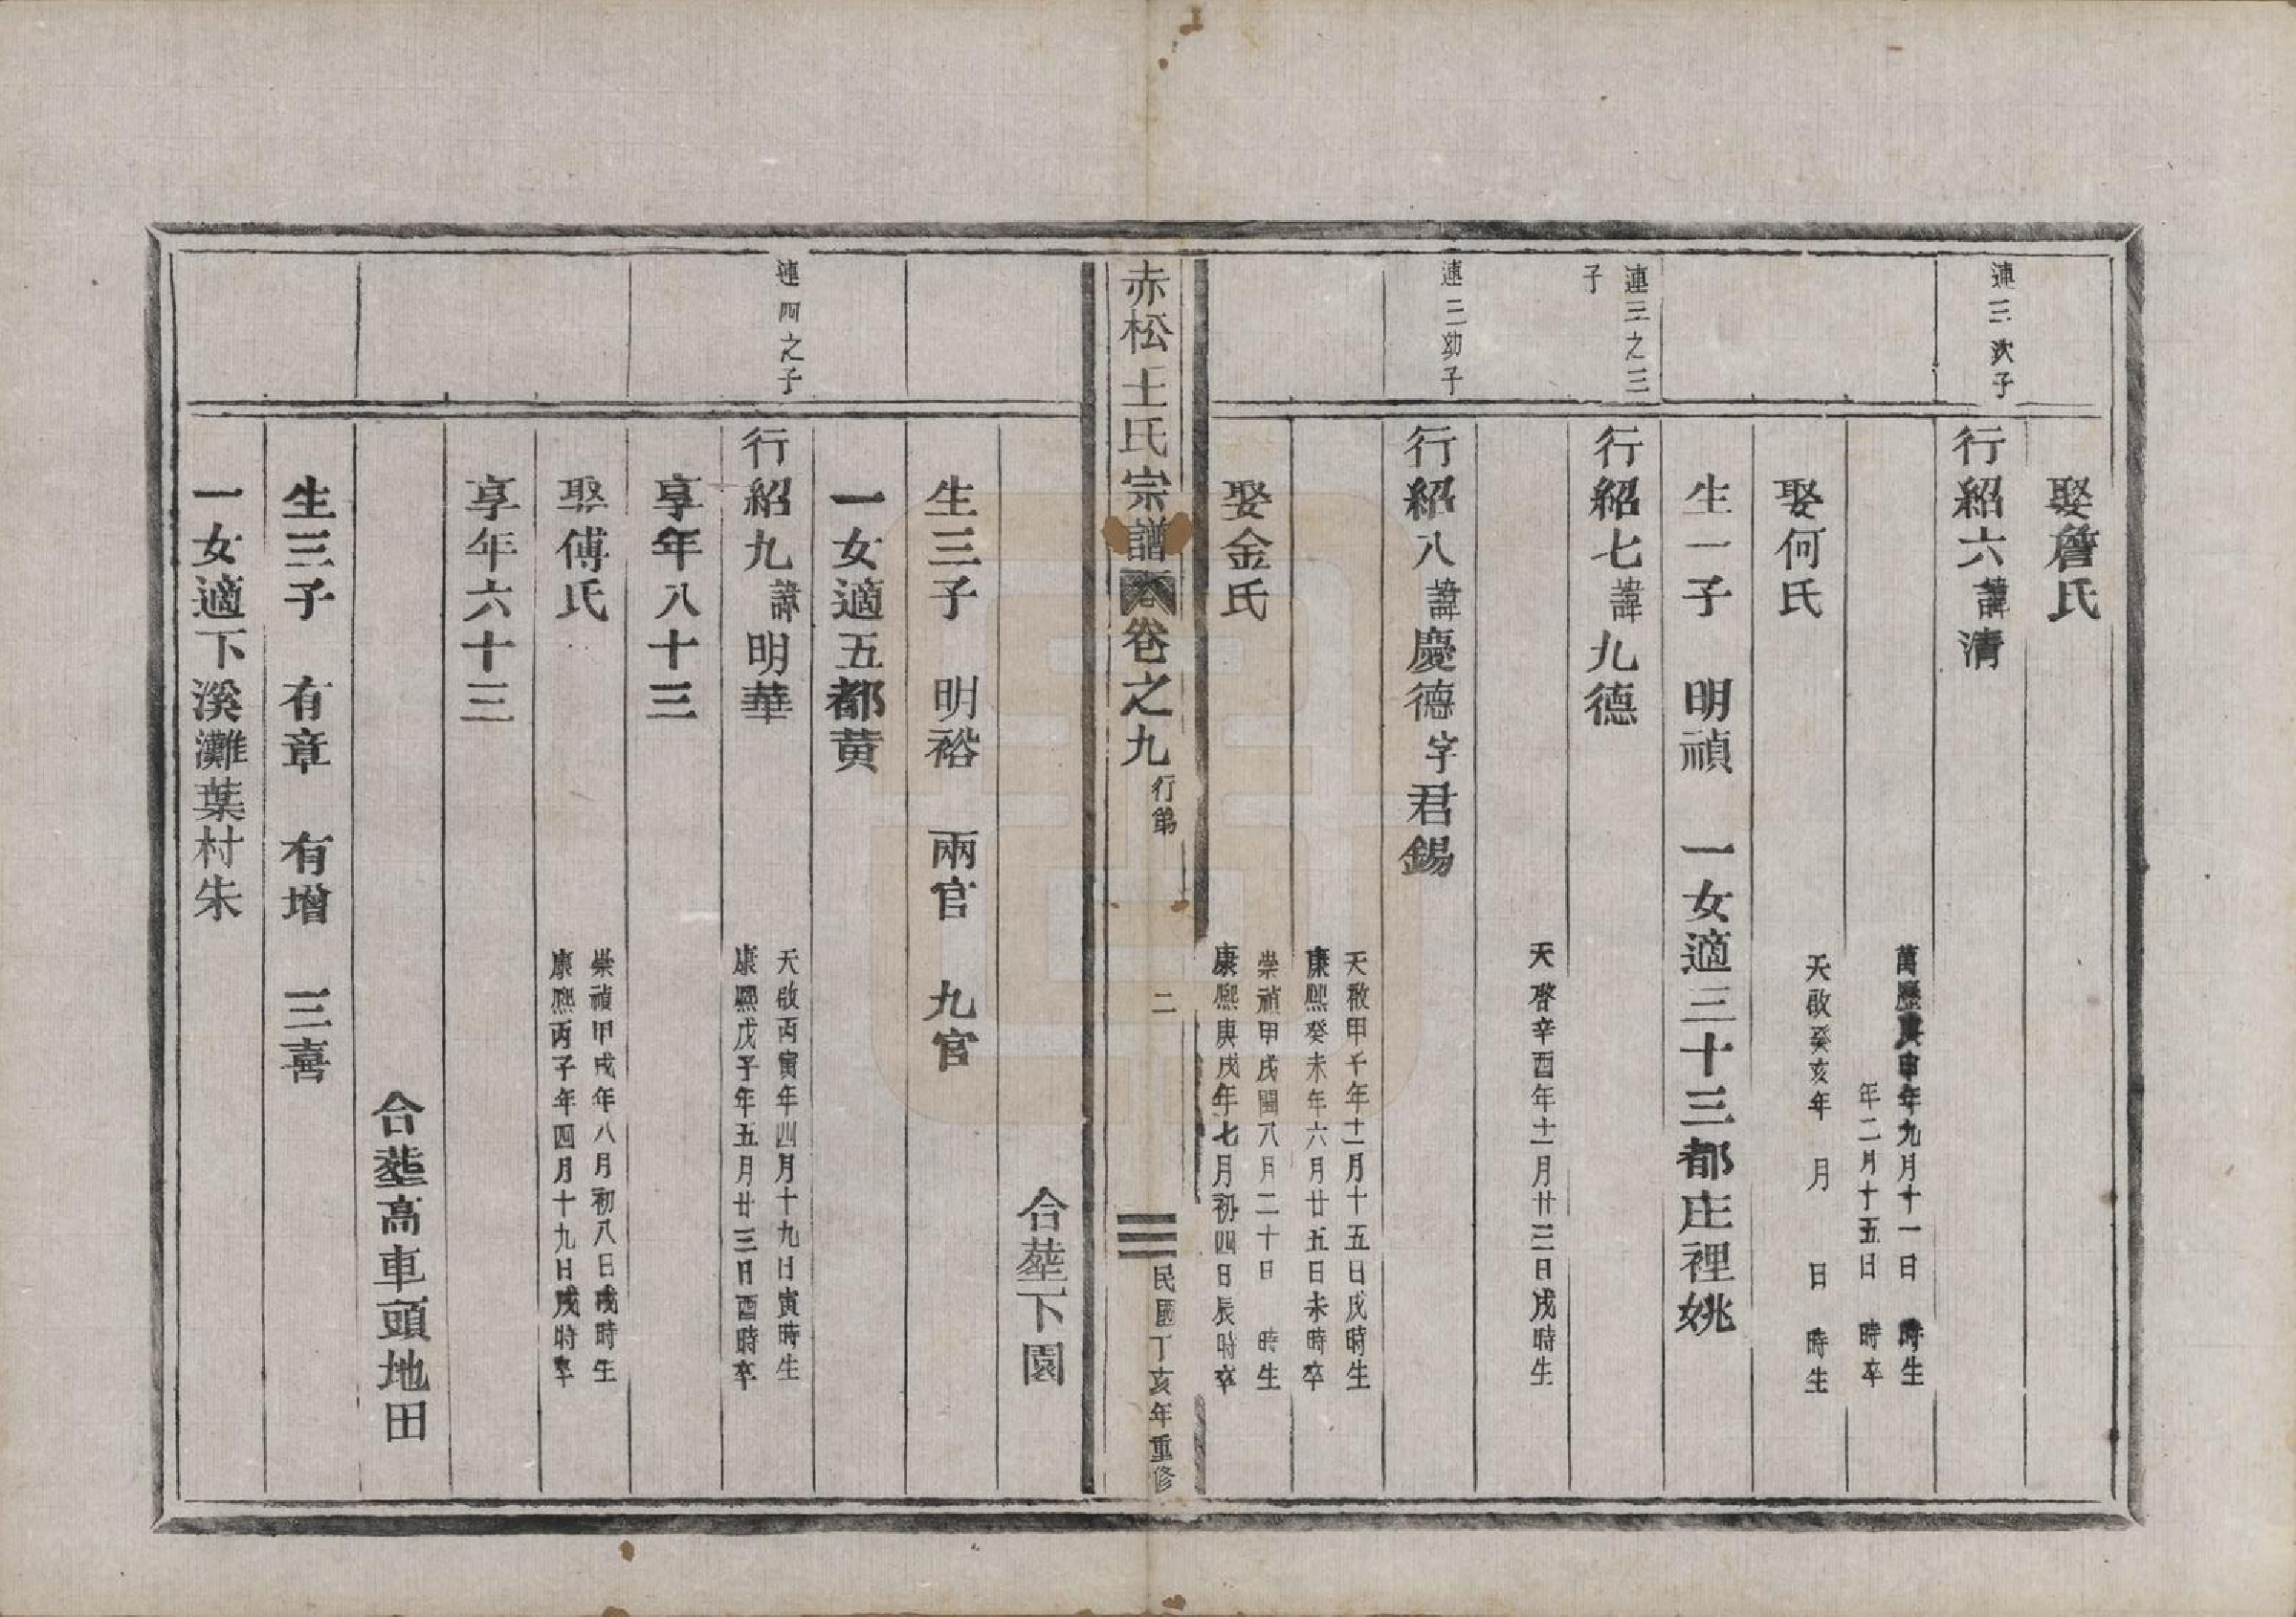 娶詹氏
連三次子
行紹六諱清
萬歷庚申年九月十一日 時生
年二月十五日 時卒
娶何氏
天啟癸亥年 月 日 時生
生一子 明禎 一女適三十三都庄裡姚
連三之三子
行紹七諱九德
天啓辛酉年十一月廿三日戌時生
連三幼子
行紹八諱慶德字君錫
天啟甲子年十一月十五日戌時生
康熙癸未年六月廿五日未時卒
娶金氏
崇禎甲戌閏八月二十日 時生
康熙庚戌年七月初四日辰時卒
赤松王氏宗譜 卷之九 行第 二 民國丁亥年重修
合塟下園
生三子 明裕 兩官 九官
一女適五都黄
連四之子
行紹九諱明華
天啟丙寅年四月十九日寅時生
康熙戊子年五月廿三日酉時卒
享年八十三
娶傅氏
崇禎甲戌年八月初八日戌時生
康熙丙子年四月十九日戌時卒
享年六十三
合塟高車頭地田
生三子 有章 有增 三喜
一女適下溪灘葉村朱